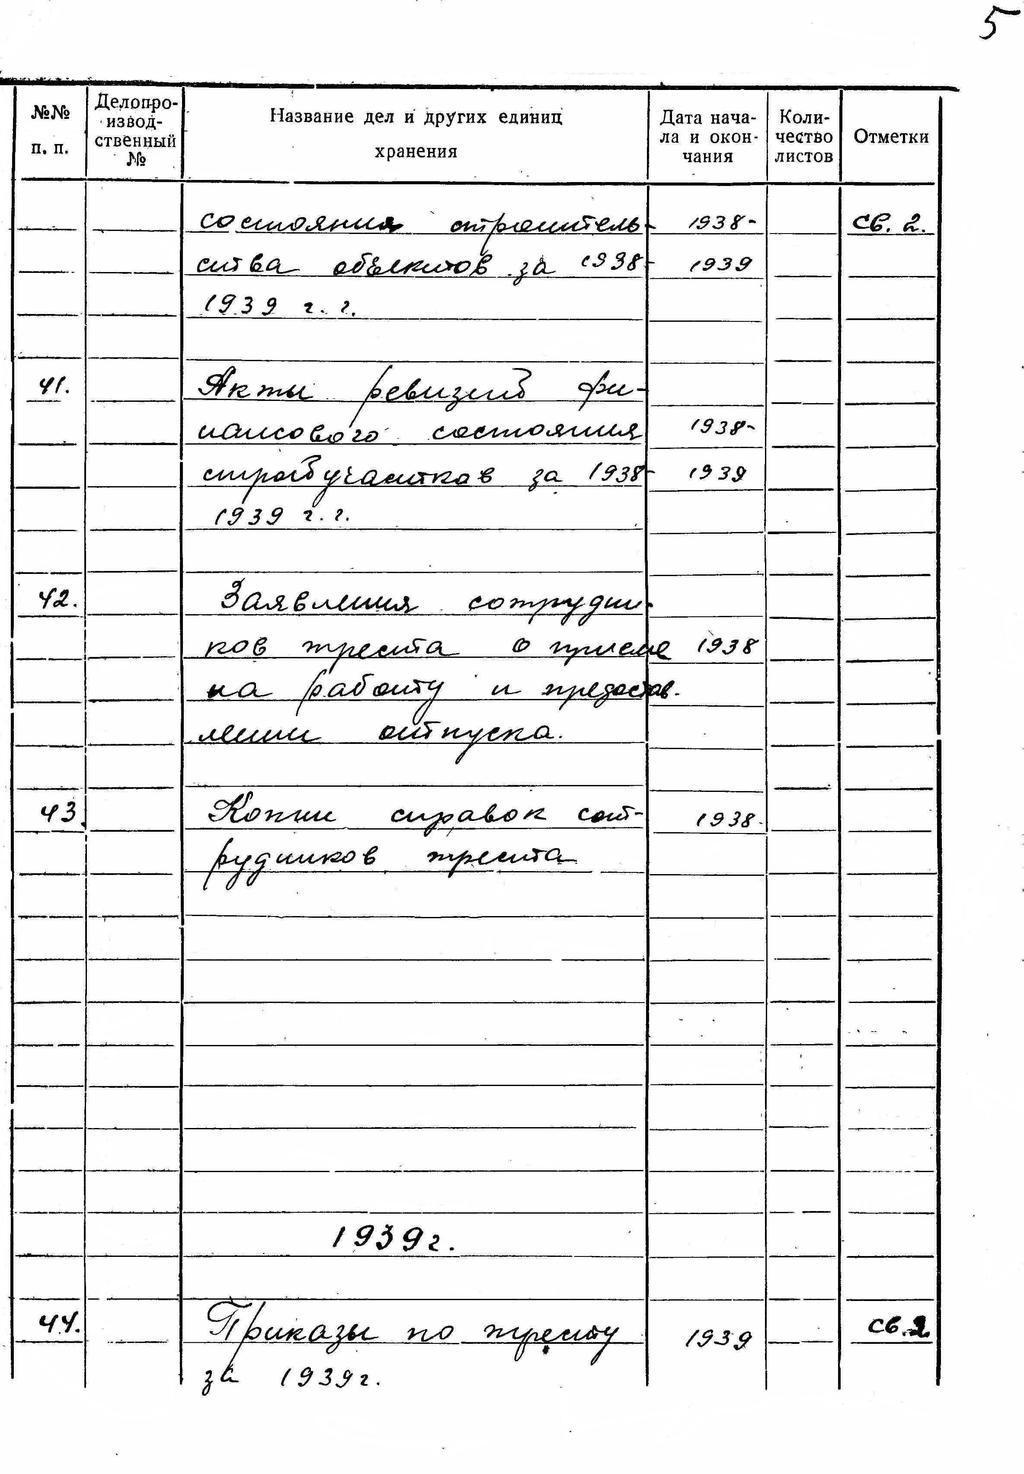 5
№№ п. п. Делопроизводственный № Название дел и других единиц хранения Дата начала и окончания Количество листов Отметки
состояния строитель- 1938- св. 2.
ства объектов за 1938- 1939
1939 г. г.
41. Акты ревизий фи-
нансового состояния 1938-
стройучастков за 1938- 1939
1939 г. г.
42. Заявления сотрудни-
ков треста о приеме 1938
на работу и предостав-
лении отпуска.
43. Копии справок сот- 1938
рудников треста
1939 г.
44. Приказы по тресту 1939 св. 2
за 1939 г.